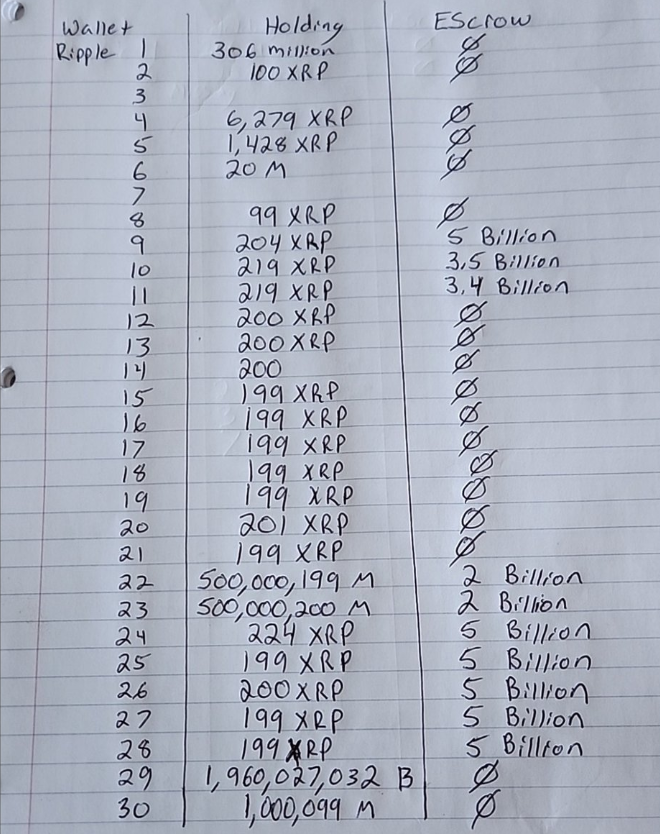 Wallet Holding EScrow
Ripple 1 306 million Ø
2 100 XRP Ø
3
4 6,279 XRP Ø
5 1,428 XRP Ø
6 20 M Ø
7
8 99 XRP Ø
9 204 XRP 5 Billion
10 219 XRP 3,5 Billion
11 219 XRP 3,4 Billion
12 200 XRP Ø
13 200 XRP Ø
14 200 Ø
15 199 XRP Ø
16 199 XRP Ø
17 199 XRP Ø
18 199 XRP Ø
19 199 XRP Ø
20 201 XRP Ø
21 199 XRP Ø
22 500,000,199 M 2 Billion
23 500,000,200 M 2 Billion
24 224 XRP 5 Billion
25 199 XRP 5 Billion
26 200 XRP 5 Billion
27 199 XRP 5 Billion
28 199 XRP 5 Billion
29 1,960,027,032 B Ø
30 1,000,099 M Ø